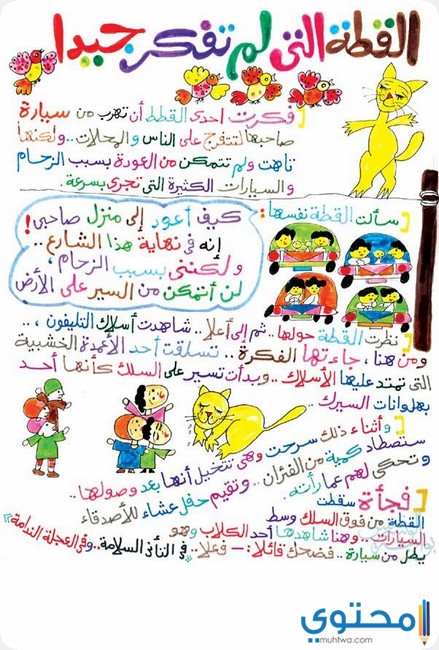 القطة التى لم تفكر جيدا
فكرت احدى القطط أن تهرب من سيارة
صاحبها لتتفرج على الناس والمحلات .. ولكنها
تاهت ولم تتمكن من العودة بسبب الزحام
والسيارات الكثيرة التى تجرى بسرعة .
سألت القطة نفسها :
كيف أعود إلى منزل صاحبى !
إنه فى نهاية هذا الشارع ..
ولكننى بسبب الزحام ،
لن أتمكن من السير على الأرض
نظرت القطة حولها .. ثم إلى أعلا .. شاهدت أسلاك التليفون ، ..
ومن هنا ، جاءتها الفكرة .. تسلقت أحد الأعمدة الخشبية
التى تمتد عليها الأسلاك .. وبدأت تسير على السلك كأنها أحد
بهلوانات السيرك .
وأثناء ذلك سرحت وهى تتخيل أنها بعد وصولها ..
ستصطاد كمية من الفئران .. وتقيم حفل عشاء للأصدقاء
وتحكى لهم عما رأته .
فجأة سقطت
القطة من فوق السلك وسط
السيارات .. وهنا شاهدها أحد الكلاب وهو
يطل من سيارة .. فضحك قائلا : - فعلا .. " فى التأنى السلامة .. وفى العجلة الندامة "
محتوى
muhtwa.com